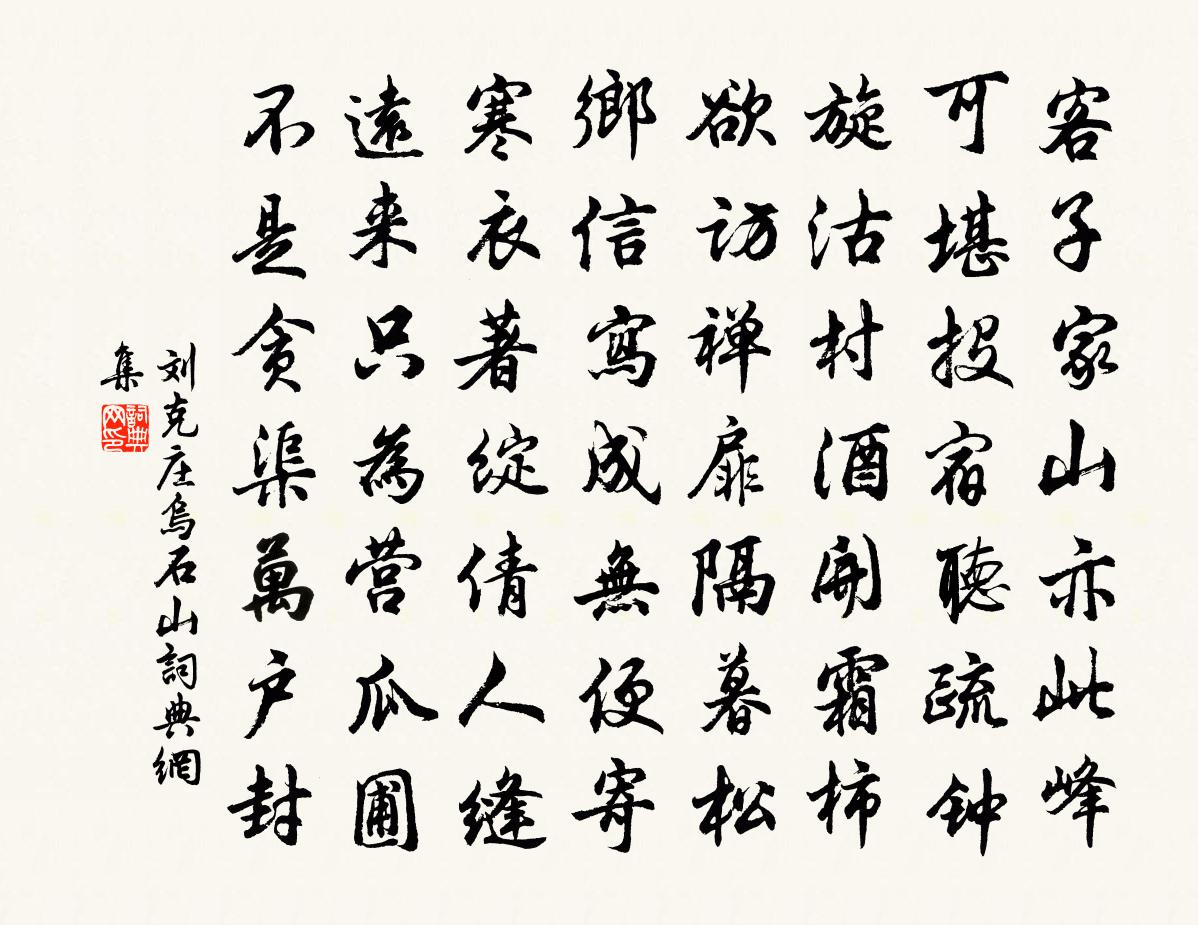 客子家山亦此峰
可堪投宿聽疏钟
旋沽村酒開霜柿
欲访禅扉隔暮松
鄉信寫成無便寄
寒衣著綻倩人縫
遠来只為营瓜圃
不是贪渠萬户封
刘克庄烏石山詞典網
集
詞典
网印